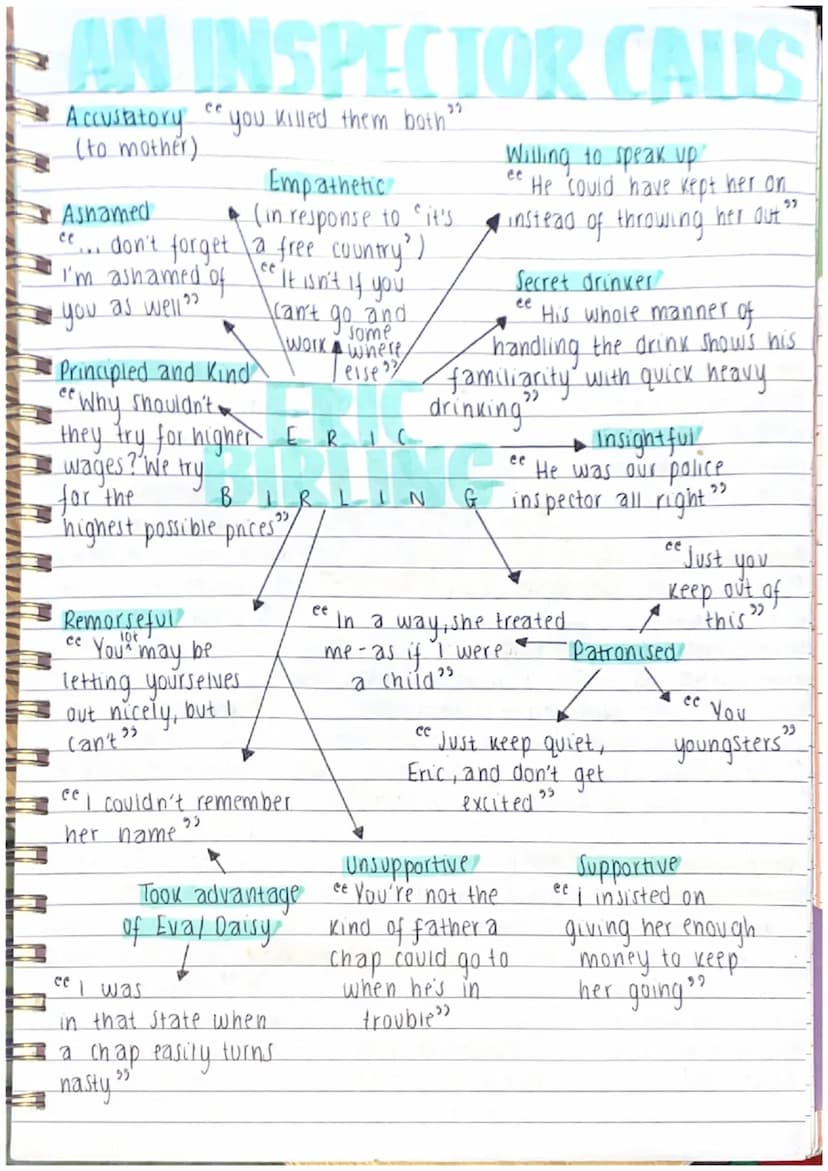 AN INSPECTOR CALLS
Accustatory "you killed them both"
(to mother)
Willing to speak up
"He could have kept her on
instead of throwing her out"
Empathetic
(in response to 'it's
a free country')
"It isn't if you
can't go and
work some
where
else"
Ashamed
"... don't forget
I'm ashamed of
you as well"
Secret drinker
"His whole manner of
handling the drink shows his
familiarity with quick heavy
drinking"
Principled and Kind
"Why shouldn't
they try for higher
wages? We try
for the
highest possible prices"
ERIC
E R I C
BIRLING
B I R L I N G
Insightful
"He was our police
inspector all right"
"Just you
keep out of
this"
Remorseful
"You lot may be
letting yourselves
out nicely, but I
can't"
"In a way, she treated
me-as if I were
a child"
Patronised
"You
youngsters"
"Just keep quiet,
Eric, and don't get
excited"
"I couldn't remember
her name"
Took advantage
of Eva/ Daisy
"I was
in that state when
a chap easily turns
nasty"
Unsupportive
"You're not the
kind of father a
chap could go to
when he's in
trouble"
Supportive
"i insisted on
giving her enough
money to keep
her going"